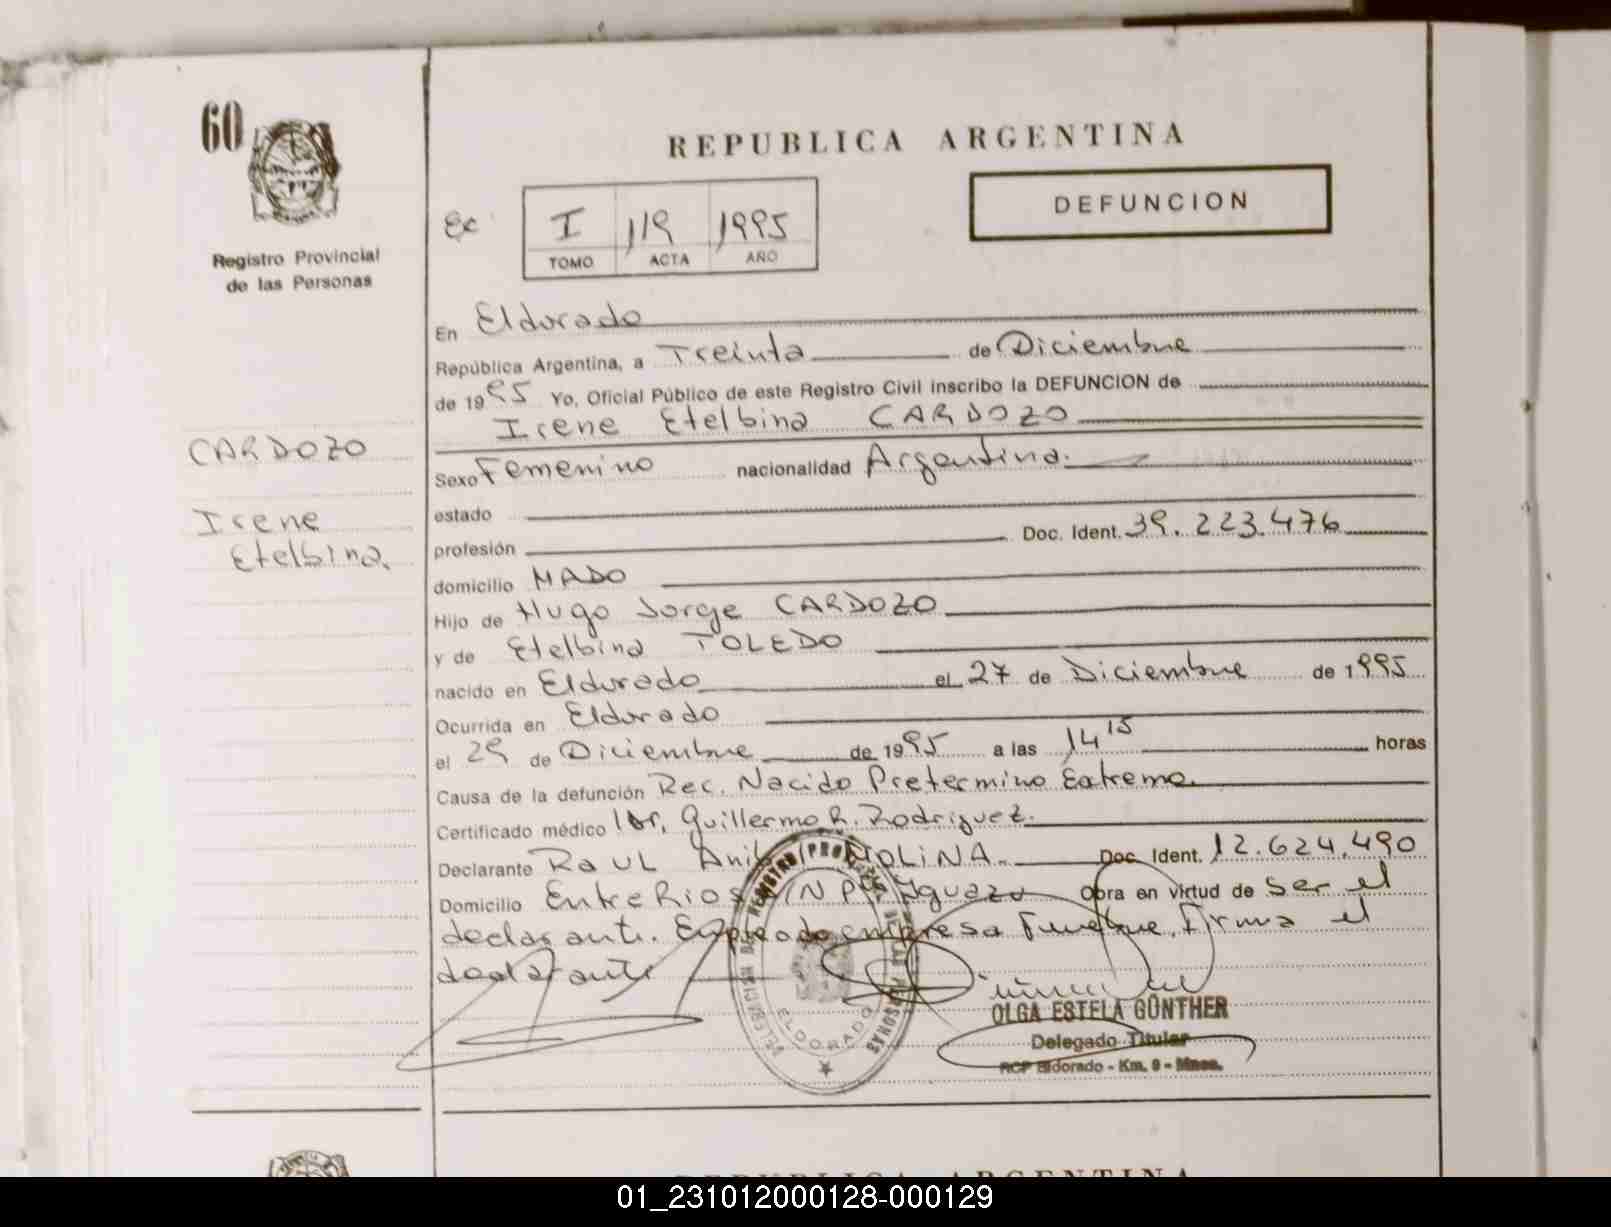 60
REPUBLICA ARGENTINA
DEFUNCION
Registro Provincial
de las Personas
I 119 1995
TOMO ACTA AÑO
En Eldorado
República Argentina, a Treinta de Diciembre
de 1995 Yo, Oficial Público de este Registro Civil inscribo la DEFUNCION de
Irene Etelbina CARDOZO
CARDOZO
Irene
Etelbina.
Sexo Femenino nacionalidad Argentina.
estado
profesión Doc. Ident. 39.223.476
domicilio MADO
Hijo de Hugo Jorge CARDOZO
y de Etelbina TOLEDO
nacido en Eldorado el 27 de Diciembre de 1995
Ocurrida en Eldorado
el 29 de Diciembre de 1995 a las 14 15 horas
Causa de la defunción Rec. Nacido Pretermino Extremo.
Certificado médico Guillermo R. Rodriguez.
Declarante RAUL MOLINA Doc. Ident. 12.624.490
Domicilio Entre Rios Iguazu Obra en virtud de ser el
declarante. Empleado empresa Funebre. Firma el
declarante
DELEGACION DE REGISTRO PROVINCIAL DE LAS PERSONAS
ELDORADO
OLGA ESTELA GÜNTHER
Delegado Titular
RCP Eldorado - Km. 9 - Mnes.
REPUBLICA ARGENTINA
01_231012000128-000129